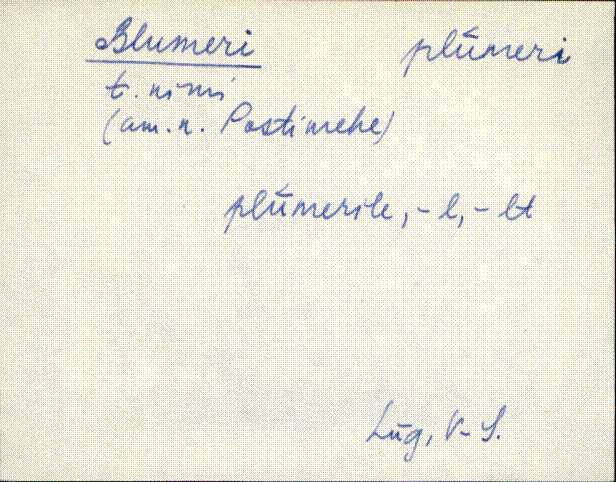 Blumeri plūmeri
t. nimi
(am. n. Postimehe)
plūmerile, -l, -lt
Lüg, V-S.